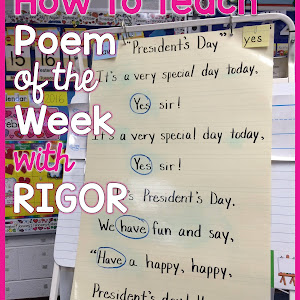 How To Teach
Poem
of the
Week
with
RIGOR
"President's Day"
yes
It's a very special day today,
Yes sir!
t's a very special day today,
Yes sir!
President's Day.
We have fun and say,
"Have a happy, happy,
President's day
15 16